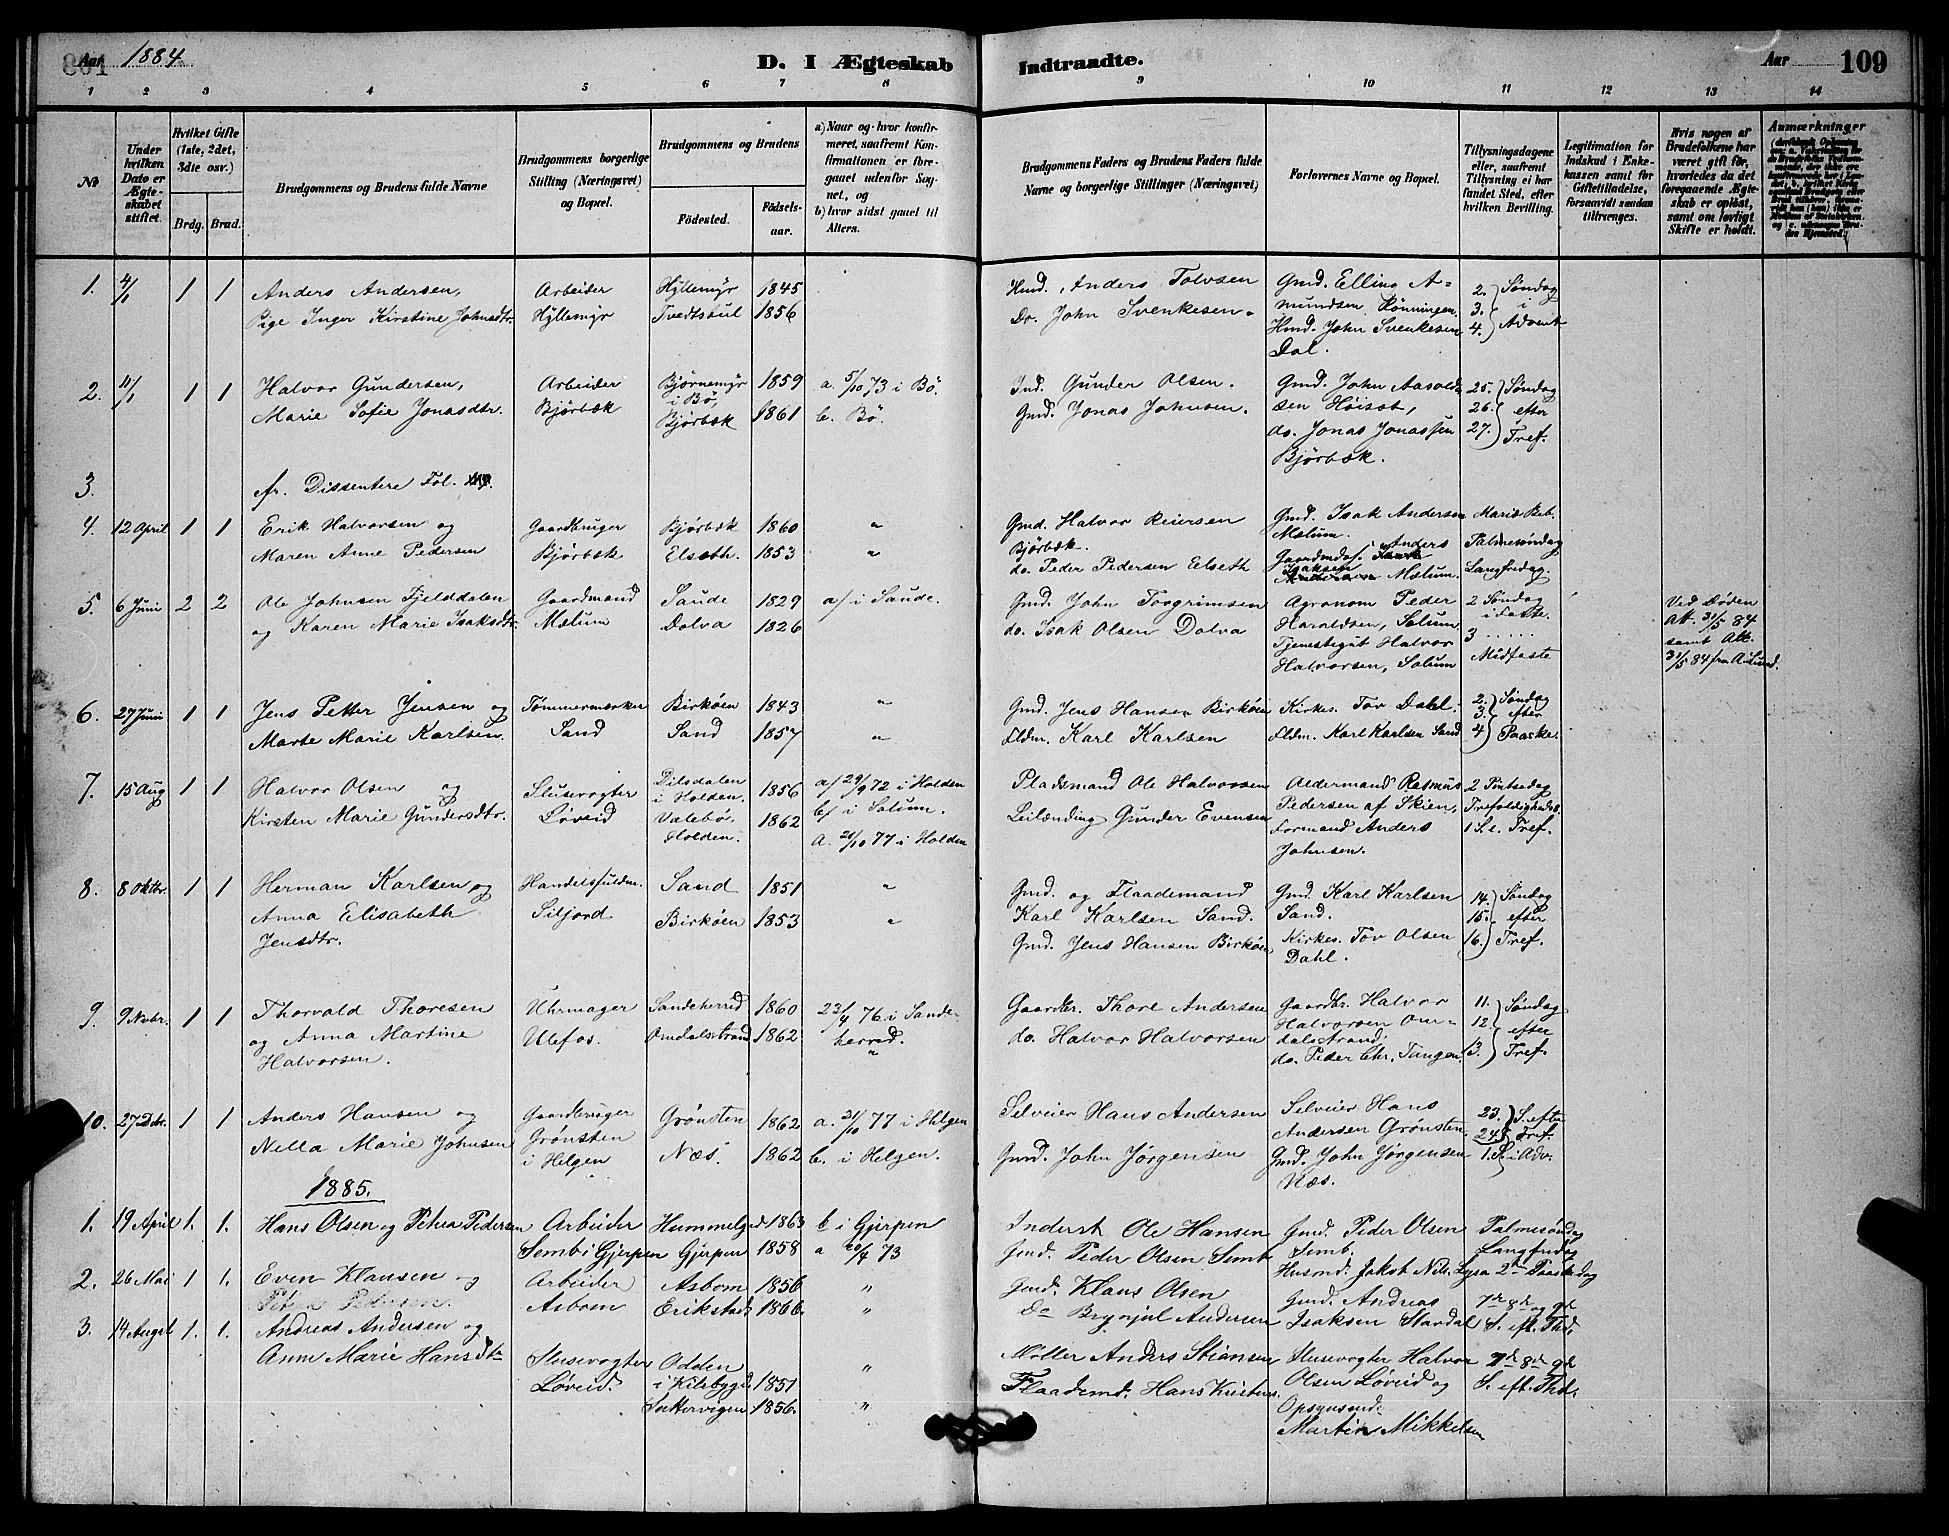 Aar 1884
D. I Ægteskab Indtraadte.
Aar 109
1 2 3 4 5 6 7 8 9 10 11 12 13 14
No
Under hvilken Dato er Ægteskabet stiftet.
Hvilket Gifte (1ste, 2det, 3dte osv.)
Brdg. Brud.
Brudgommens og Brudens fulde Navne
Brudgommens borgerlige Stilling (Næringsvei) og Bopæl.
Brudgommens og Brudens
Fødested. Fødselsaar.
a) Naar og hvor konfirmeret, saafremt Konfirmationen er foregaaet udenfor Sognet, og
b) hvor sidst gaaet til Alters.
Brudgommens Faders og Brudens Faders fulde Navne og borgerlige Stillinger (Næringsvei)
Forlovernes Navne og Bopæl.
Tillysningsdagene eller, saafremt Tillysning ei har fundet Sted, efter hvilken Bevilling.
Legitimation for Indskud i Enkekassen samt for Giftetilladelse, forsaavidt saadan tiltrænges.
Hvis nogen af Brudefolkene har været gift før, hvorledes da det foregaaende Ægteskab er opløst, samt om lovligt Skifte er holdt.
Anmærkninger
1. 4/1 1 1 Anders Andersen, Arbeider Hyllemyr 1845 Hmd. Anders Tolvsen Gmd. Elling A- 2. Søndag
Pige Inger Kirstine Johnsdtr. Hyllemyr Tvedtstul 1856 Do. John Svenkesen. mundsen Rønningen. 3. i
Hmd. John Svenkesen 4. Advent
Dal.
2. 11/1 1 1 Halvor Gundersen, Arbeider Bjørnemyr i Bø, 1859 a. 5/10 73 i Bø. Ind. Gunder Olsen. Gmd. John Aasold- 25. Søndag
Marie Sofie Jonasdtr. Bjørbæk Bjørbæk 1861 b. Bø. Gmd. Jonas Johnsen. sen Høisæt, 26. efter
do. Jonas Jonassen 27. Tref.
Bjørbæk.
3. fr. Dissentere Fol.
4. 12 April 1 1 Erik Halvorsen og Gaardbruger Bjørbæk 1860 " Gmd. Halvor Reiersen Gmd. Isak Andersen Mariæ Beb.
Maren Anne Pedersen Bjørbæk Elseth. 1853 " Bjørbæk. Mælum. Palmesøndag
do. Peder Pedersen Elseth Anders Isaksen Mælum. Langfredag.
5. 6 Juni 2 2 Ole Johnsen Fjelddalen Gaardmand Saude 1829 a/ i Saude. Gmd. John Torgrimsen Agronom Peder 2 Søndag Ved Døden
og Karen Marie Isaksdtr. Mælum Dolva 1826 do. Isak Olsen Dolva Haraldsen, Solum i Faste. Att. 31/5 84
Tjenestegut Halvor 3 ...... samt Att.
Halvorsen, Solum Midfaste 31/5 84 fra A. Lund.
6. 27 Juni 1 1 Jens Petter Jensen og Tømmermærker Birkøen 1843 " Gmd. Jens Hansen Birkøen Kirkes. Tov Dahl. 2. Søndag
Marte Marie Karlsen. Sand Sand 1857 " Fldm. Karl Karlsen Fldm. Karl Karlsen Sand 3. efter
4 Paaske.
7. 15 Aug 1 1 Halvor Olsen og Slusevogter Dilsdalen i Holden. 1856 a/ 29/9 72 i Holden Pladsmand Ole Halvorsen Aldermand Rasmus 2 Pintsedag
Kirsten Marie Gundersdtr. Løveid Valebø, Holden. 1862 b/ i Solum. Leilænding Gunder Evensen Pedersen af Skien, Trefoldigheds.
a. 21/10 77 i Holden Formand Anders 1 S. e. Tref.
Johnsen.
8. 8 Oktbr. 1 1 Herman Karlsen og Handelsfuldm. Sand 1851 " Gmd. og Flaademand Gmd. Karl Karlsen 14. Søndag
Anna Elisabeth Siljord Birkøen 1853 " Karl Karlsen Sand. Sand. 15. efter
Jensdtr. Gmd. Jens Hansen Birkøen Kirkes. Tov Olsen 16. Tref.
Dahl.
9. 9 Novbr. 1 1 Thorvald Thoresen Uhrmager Sandeherred 1860 23/4 76 i Sande- Gaardbr. Thore Andersen Gaardbr. Halvor 11. Søndag
og Anna Martine Ulefos. Omdalsstrand 1862 herred. do. Halvor Halvorsen Halvorsen Om- 12. efter
Halvorsen. " dalsstrand. 13. Tref.
do. Peder Chr. Tangen.
10. 27 Dcbr. 1 1 Anders Hansen og Gaardbruger Grønsten 1862 a. 21/10 77 i Helgen Selveier Hans Andersen Selveier Hans 23. S. efter
Nella Marie Johnsen Grønsten Næs. 1862 b. i Helgen. Gmd. John Jørgensen Andersen Grønsten. 24. Tref.
i Helgen Gmd. John Jørgensen 1. S. i Adv.
Næs.
1885.
1. 19 April 1. 1. Hans Olsen og Petrea Pedersen Arbeider 1863 b i Gjerpen Inderst Ole Hansen Gmd. Peder Olsen Palmesøndag
Semb i Gjerpen Gjerpen 1858 a 20/4 73 Gmd. Peder Olsen Semb Semb. Langfredag
Husmd. Jakob Nils. Lysa 2den Paaskedag
2. 26 Mai 1 1. Even Klausen og Arbeider Asbom 1856 " Gmd. Klaus Olsen Gmd. Andreas 7de 8de og 9de
Pedersen. Asbom Erikstad 1866. " Do Brynjul Andersen Isaksen S. eft. Thd.
3. 14 Augst 1. 1. Andreas Andersen og Slusevogter Odden i Kilebygd. 1851 " Møller Anders Stiansen Slusevogter Halvor 7de 8de 9de
Anne Marie Hansdtr Løveid. 1856. " Flaademd. Hans Olsen Løveid og S. eft. Thd.
Opsynsmd.
Martin Mikkelsen